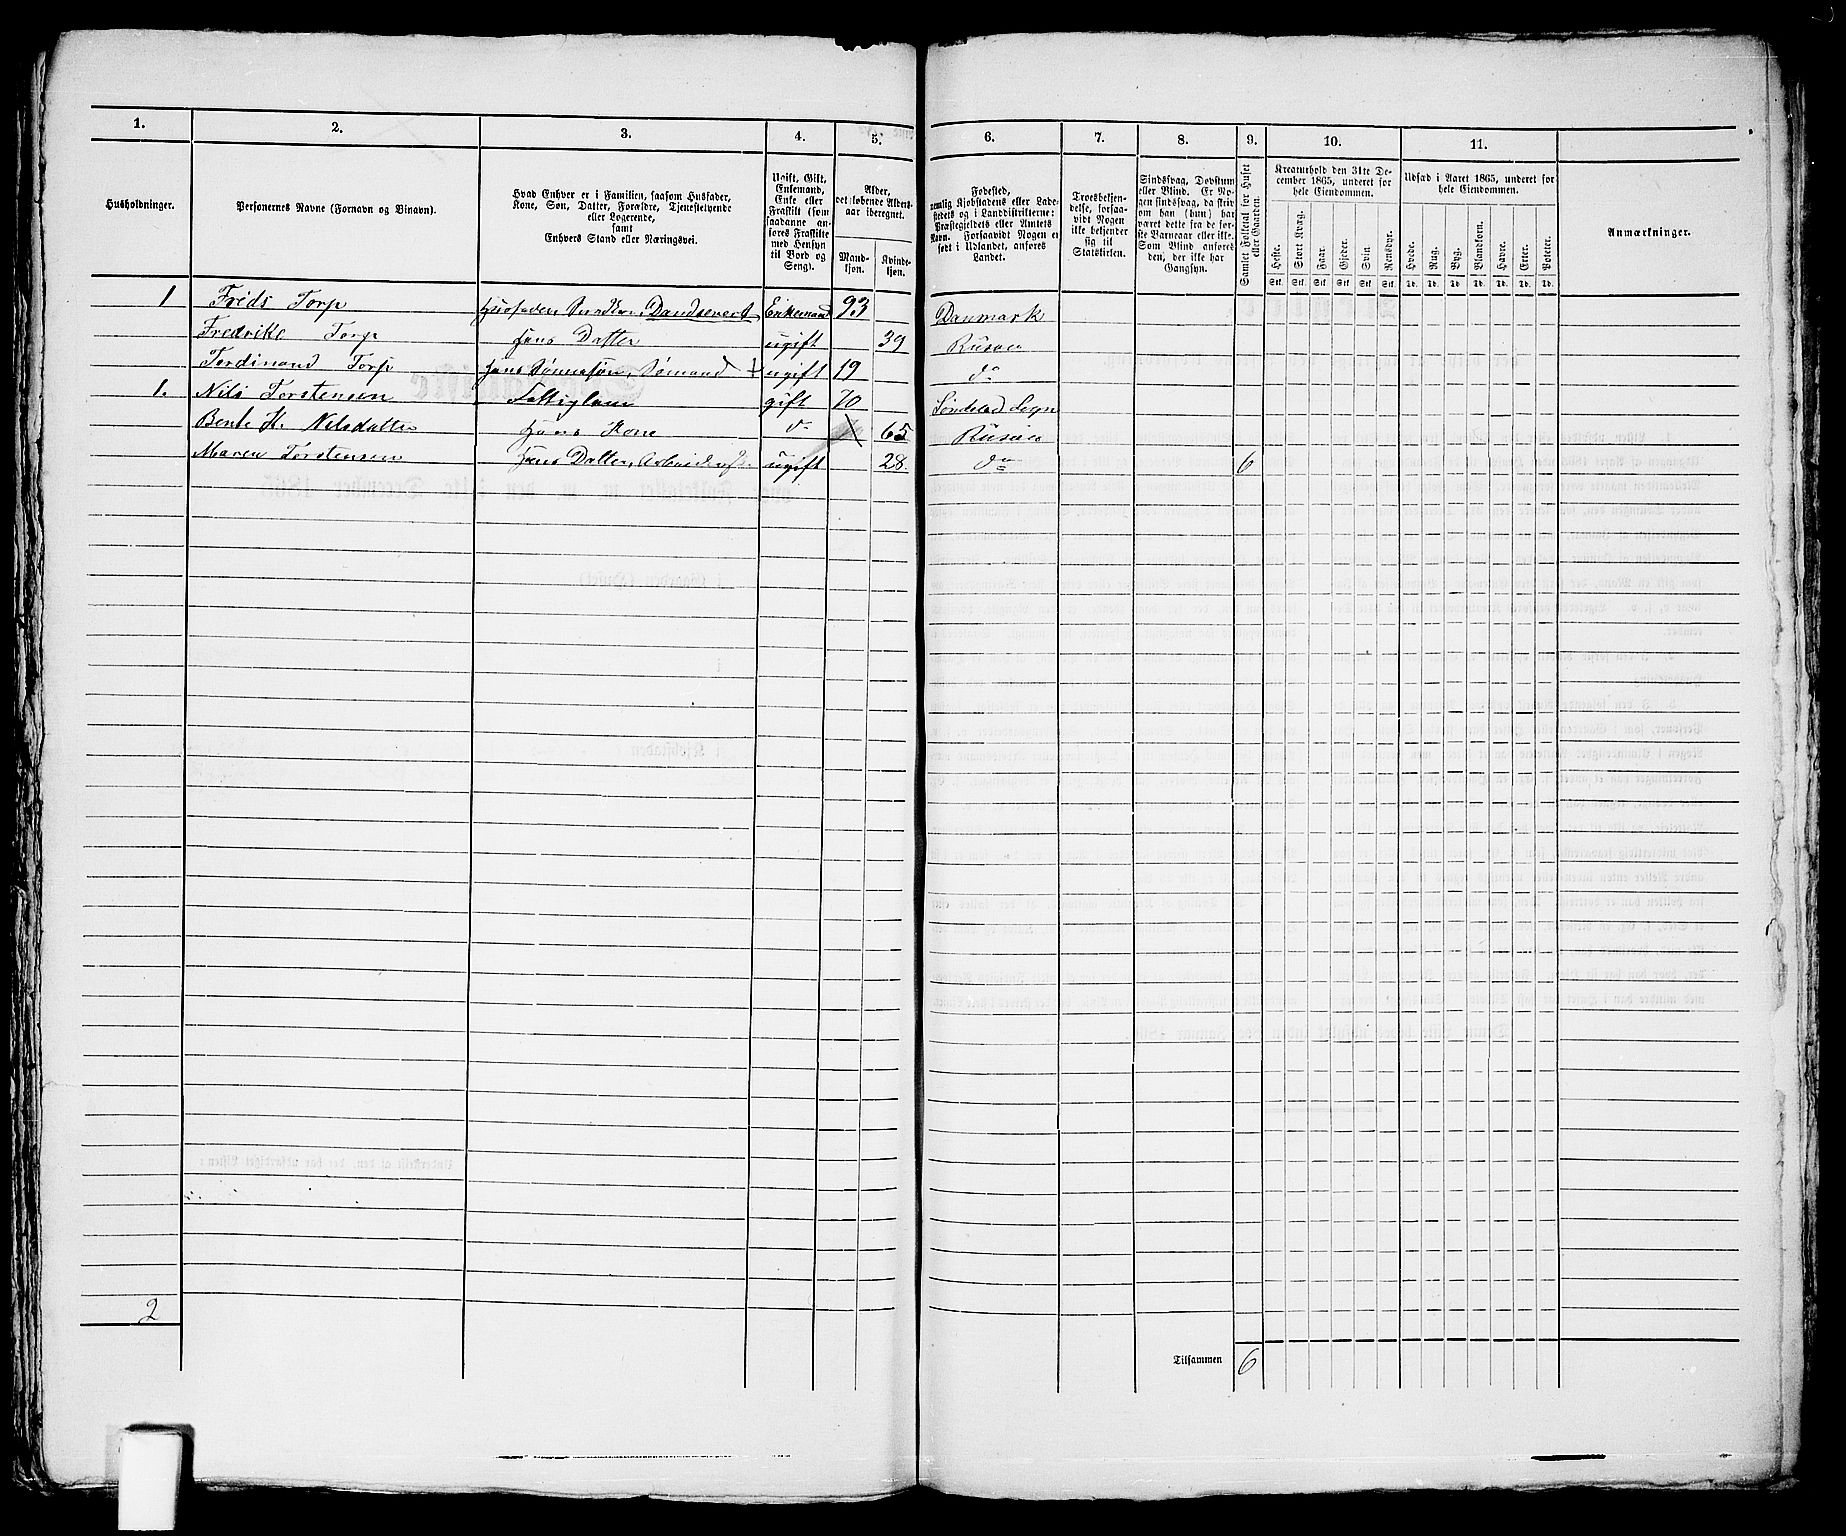 1. 2. 3. 4. 5. 6. 7. 8. 9. 10. 11.
Husholdninger.
Personernes Navne (Fornavn og Binavn).
Hvad Enhver er i Familien, saasom Husfader,
Kone, Søn, Datter, Forældre, Tjenestetyende
eller Logerende,
samt
Enhvers Stand eller Næringsvei.
Ugift, Gift,
Enkemand,
Enke eller
Fraskilt (som
saadanne an-
føres Fraskilte
med Hensyn
til Bord og
Seng).
Alder,
det løbende Alders-
aar iberegnet.
Mand-
kjøn.
Kvinde-
kjøn.
Fødested,
nemlig Kjøbstadens eller Lade-
stedets og i Landdistrikterne:
Præstegjeldets eller Amtets
Navn. Forsaavidt Nogen er
født i Udlandet, anføres
Landet.
Troesbekjen-
delse, forsaa-
vidt Nogen
ikke bekjender
sig til
Statskirken.
Sindssvag, Døvstum
eller Blind. Er No-
gen sindssvag, da skriv
om han (hun) har
været dette fra de før-
ste Barneaar eller ikke.
Som Blind anføres
den, der ikke har
Gangsyn.
Samlet Folketal for Huset
eller Gaarden.
Kreaturhold den 31te De-
cember 1865, underet for
hele Eiendommen.
Heste. Stort Kvæg. Faar. Gjeder. Svin. Rensdyr.
Stk. Stk. Stk. Stk. Stk. Stk.
Udsæd i Aaret 1865, underet for
hele Eiendommen.
Hvede. Rug. Byg. Blandkorn. Havre. Erter. Poteter.
Td. Td. Td. Td. Td. Td. Td.
Anmærkninger.
1 Frids Torp Dandsevert Enkemand 93 Danmark
Fredrike Torp hans Datter ugift 39 Risøer
Ferdinand Torp hans Sønnesøn, Sømand ugift 19 do
1. Nils Torstensen Fattiglem gift 70 Søndeled Sogn
Bente K. Nilsdatter hans Kone do 65 Risøer
Maren Torstensen hans Datter, ugift 28 do 6
2
Tilsammen 6